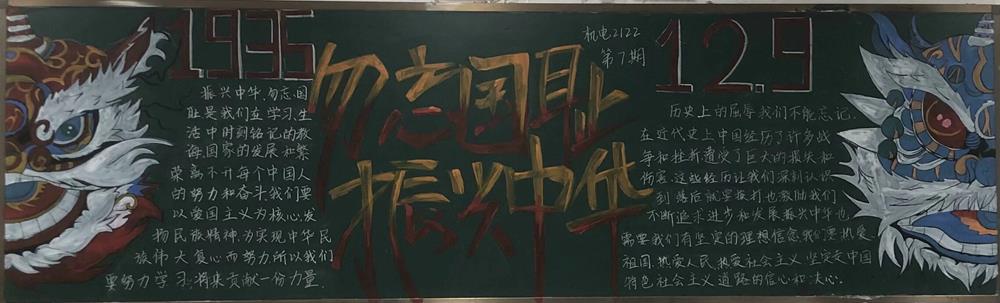 1935
勿忘国耻
振兴中华
机电2122
第7期
12.9
振兴中华,勿忘国
耻是我们在学习,生
活中时刻铭记的教
诲,国家的发展和繁
荣离不开每个中国人
的努力和奋斗我们要
以爱国主义为核心,发
扬民族精神,为实现中华民
族伟大复心而努力,所以我们
要努力学习,将来贡献一份力量.
历史上的屈辱我们不能忘记,
在近代史上中国经历了许多战
争和挫折遭受了巨大的损失和
伤害.这些经历让我们深刻认识
到落后就要挨打也激励我们
不断追求进步和发展.振兴中华也
需要我们有坚定的理想信念,我们要热爱
祖国,热爱人民,热爱社会主义,坚定走中国
特色社会主义道路的信心和决心.